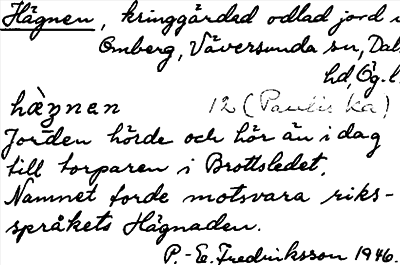 Hägnen, kringgärdad odlad jord i
Omberg, Väversunda sn, Dals
hd, Ög.l.
hæ̀gnan 12 (Paulis ka)
Jorden hörde och hör än i dag
till torparen i Brottsledet.
Namnet torde motsvara riks-
språkets Hägnaden.
P.-E. Fredriksson 1946.